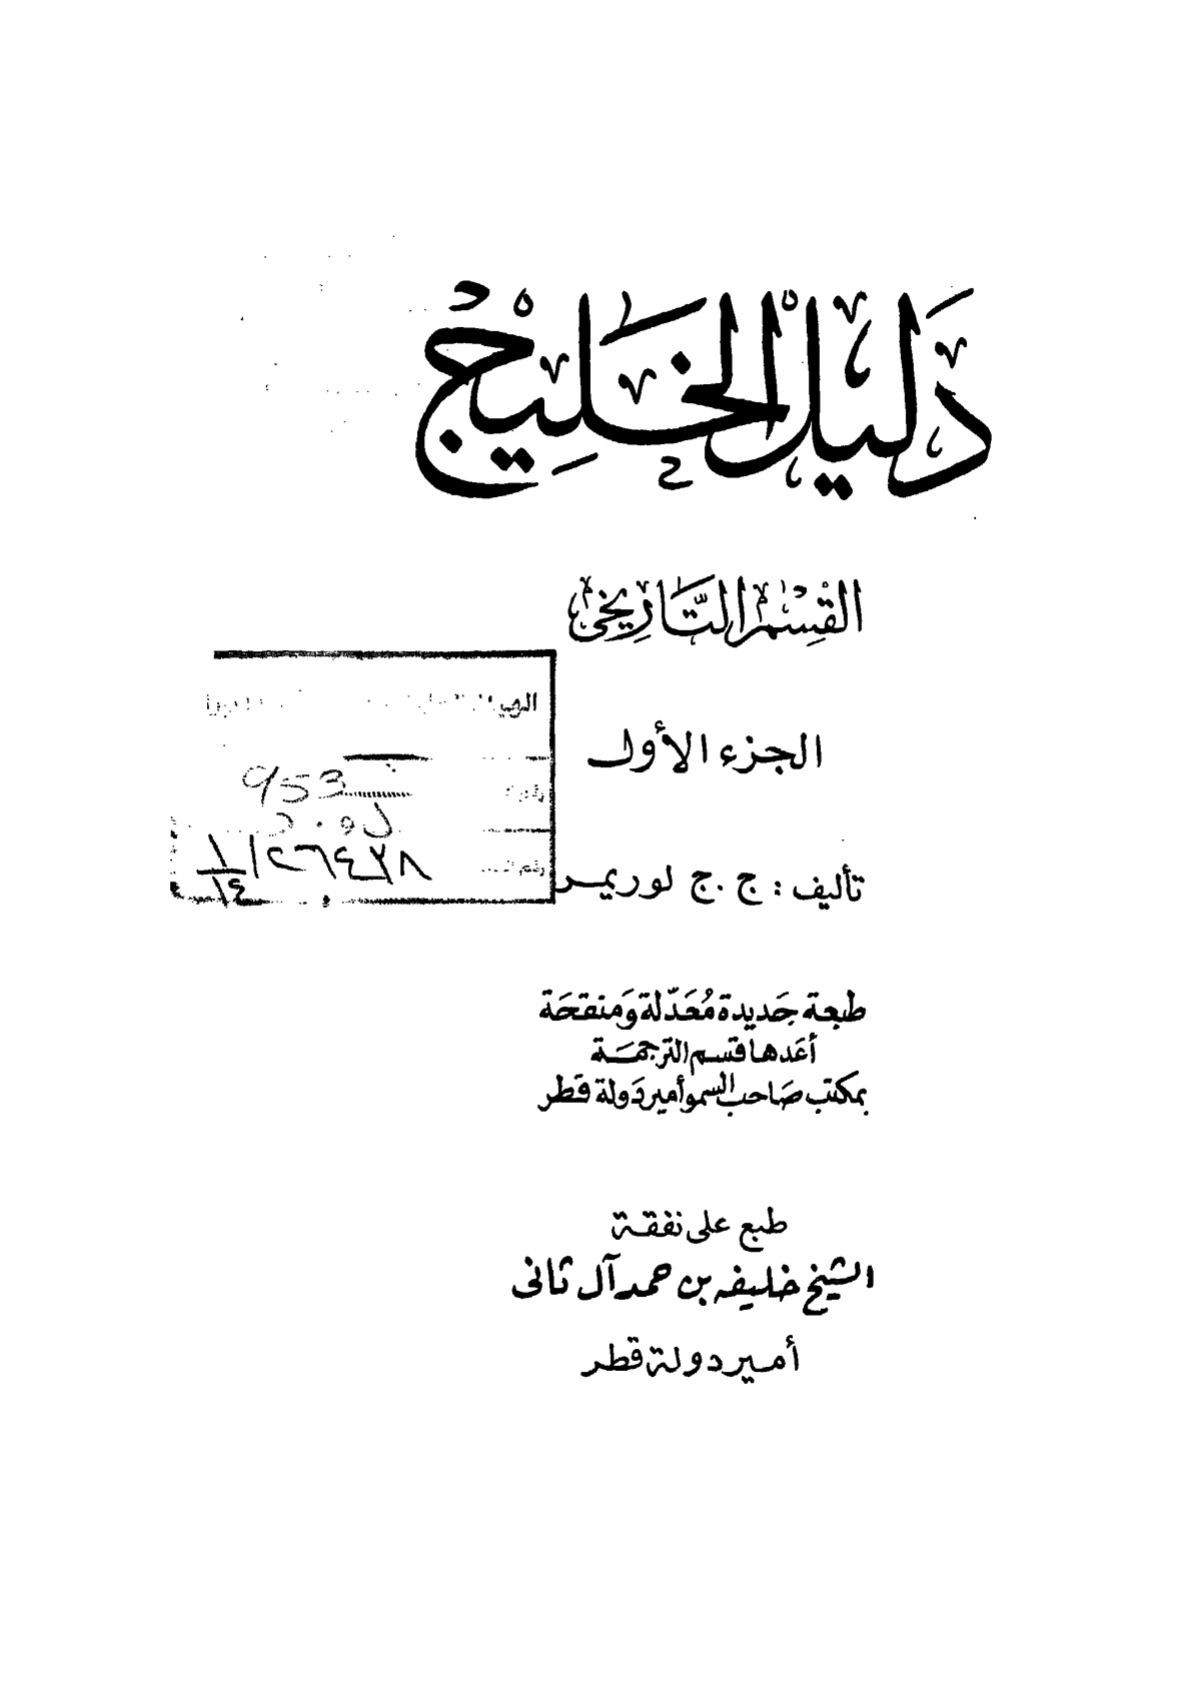 دَليل الخَليج
القِسْم التَّاريخى
الجزء الأول
953
ل و . د
تأليف : ج . ج لوريمر
طبعة جَديدة مُعَدّلة وَمنقحَة
أعَدها قسم الترجمَة
بمكتب صَاحب السمو أمير دَولة قطر
طبع على نفقة
الشيخ خليفه بن حمد آل ثانى
أمير دولة قطر